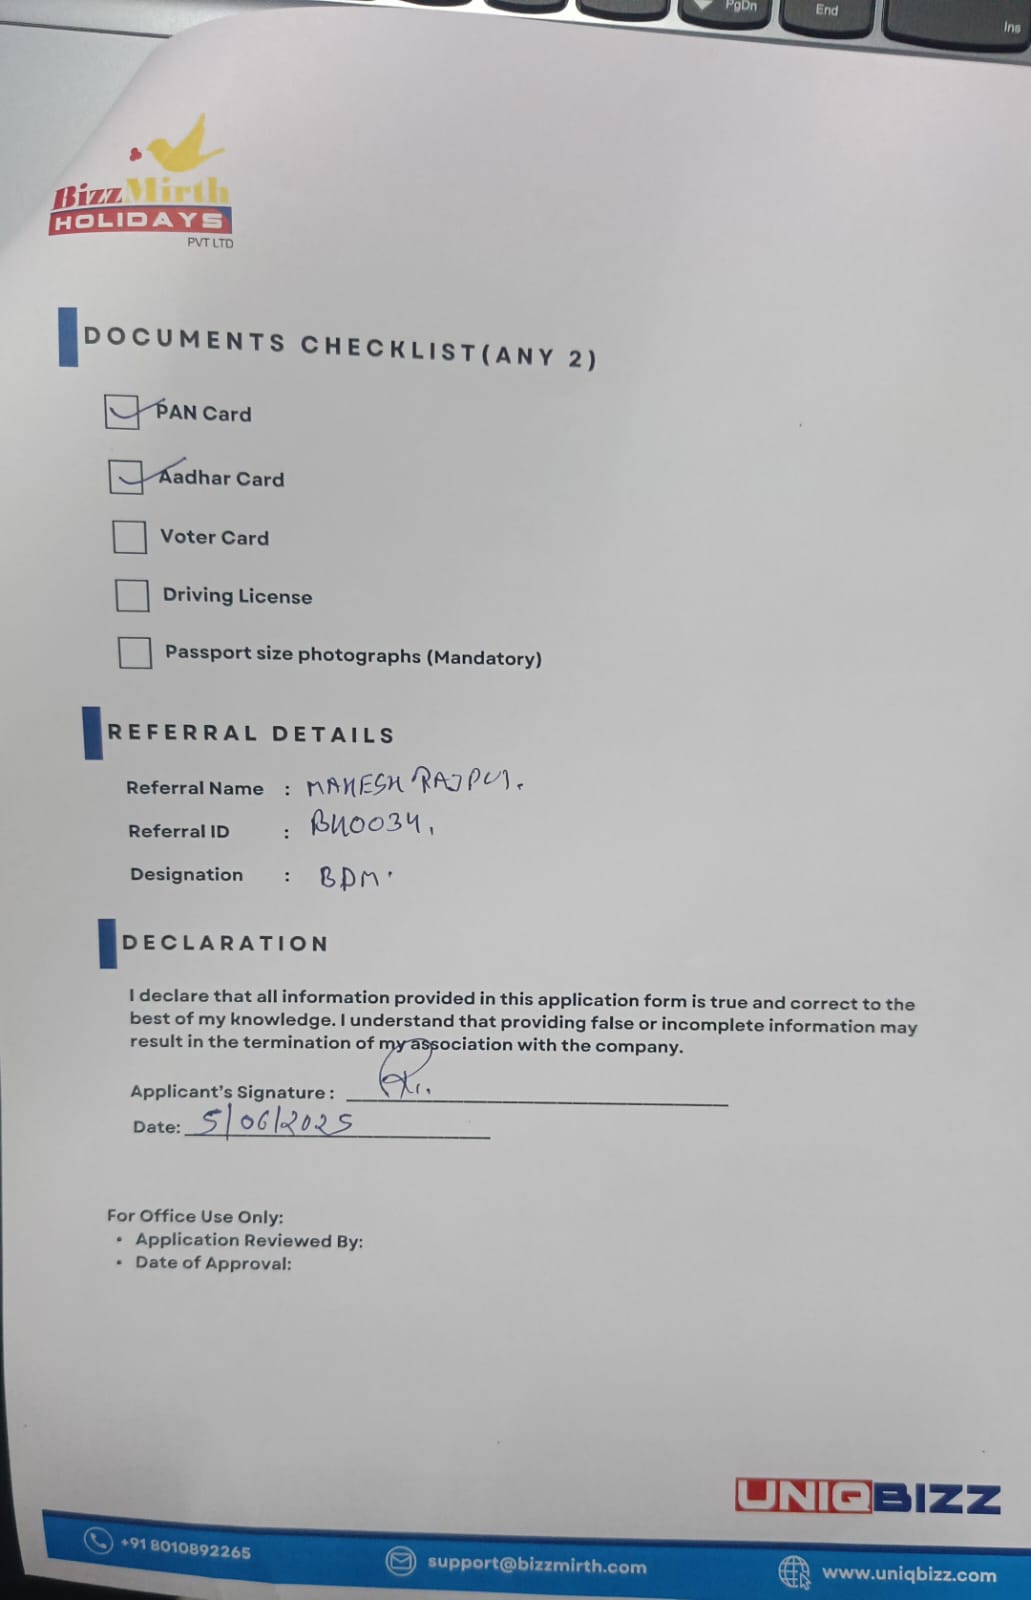 PgDn
End
Ins
BizzMirth
HOLIDAYS
PVT LTD
DOCUMENTS CHECKLIST(ANY 2)
PAN Card
Aadhar Card
Voter Card
Driving License
Passport size photographs (Mandatory)
REFERRAL DETAILS
Referral Name : MAHESH RAJPUT.
Referral ID : BH0034,
Designation : BDM.
DECLARATION
I declare that all information provided in this application form is true and correct to the
best of my knowledge. I understand that providing false or incomplete information may
result in the termination of my association with the company.
Applicant's Signature :
Date: 5/06/2025
For Office Use Only:
• Application Reviewed By:
• Date of Approval:
UNIQBIZZ
+91 8010892265
support@bizzmirth.com
www.uniqbizz.com